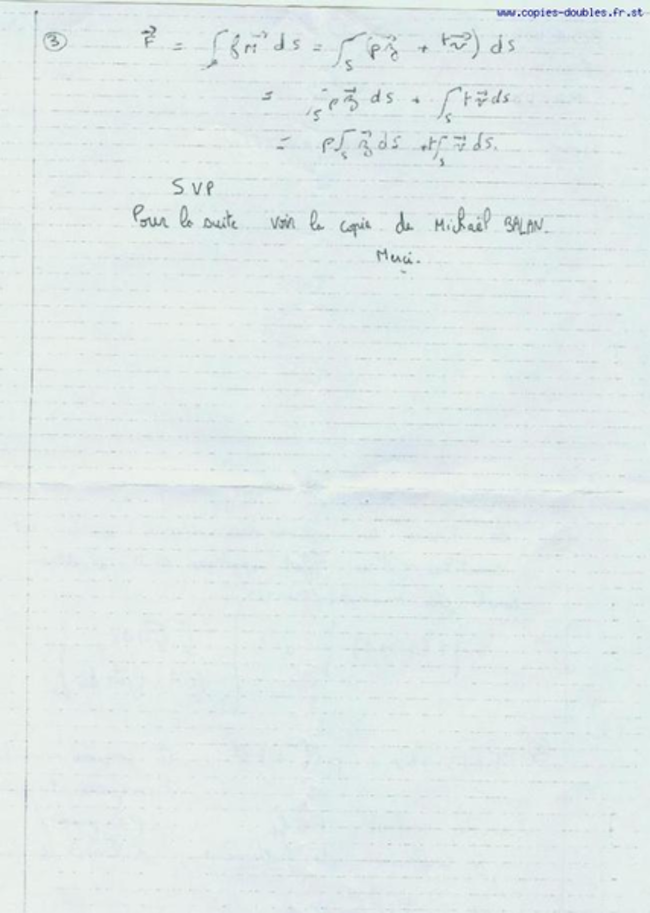 www.copies-doubles.fr.st
③ F⃗ = ∫ f n⃗ ds = ∫_S (p z⃗ + t v⃗) ds
= ∫_S p z⃗ ds + ∫_S t v⃗ ds
= p ∫_S z⃗ ds + t ∫_S v⃗ ds.
SVP
Pour la suite voir la copie de Michaël BALAN.
Merci.